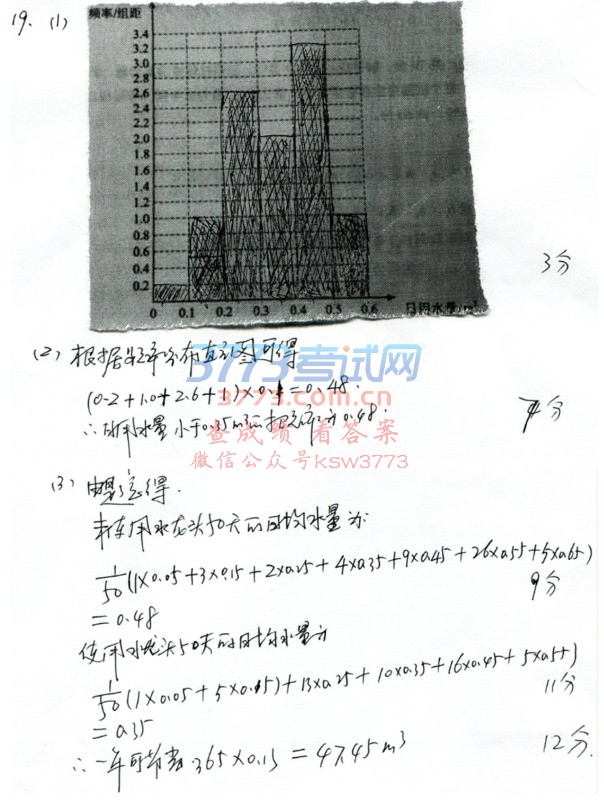 19. (1)
频率/组距
3.4
3.2
3.0
2.8
2.6
2.4
2.2
2.0
1.8
1.6
1.4
1.2
1.0
0.8
0.6
0.4
0.2
0 0.1 0.2 0.3 0.4 0.5 0.6 日用水量/m³
3分
(2) 根据频率分布直方图可得
3773考试网
(0.2+1.0+2.6+1)×0.1=0.48.
3773.com.cn
∴日用水量小于0.35m³的概率为0.48.
4分
查成绩 看答案
微信公众号ksw3773
(3) 由题意得.
未使用水龙头50天的日均水量为
1/50(1×0.05+3×0.15+2×0.25+4×0.35+9×0.45+26×0.55+5×0.65)
9分
=0.48
使用水龙头50天的日均水量为
1/50(1×0.05+5×0.15)+13×0.25+10×0.35+16×0.45+5×0.55)
11分
=0.35
∴一年可节省 365×0.13=47.45m³
12分.